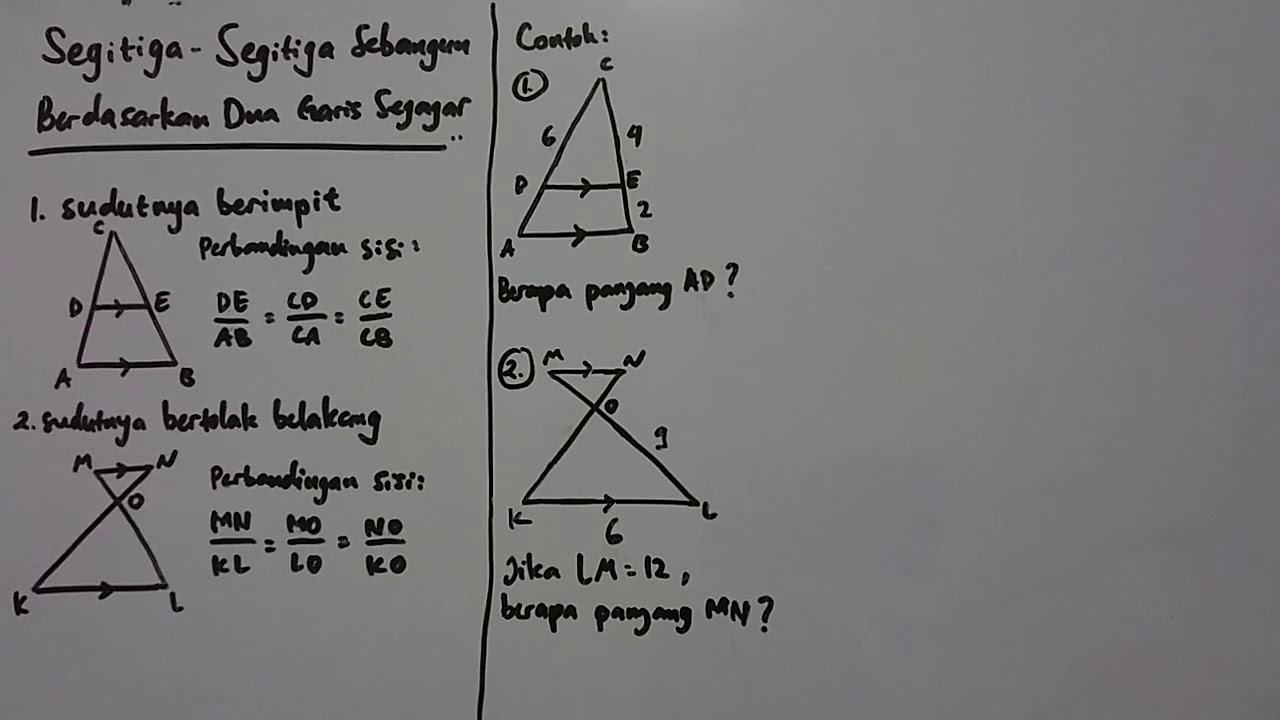 Segitiga - Segitiga Sebangun
Berdasarkan Dua Garis Sejajar
1. sudutnya berimpit
C
Perbandingan sisi:
D
E
DE/AB = CD/CA = CE/CB
A
B
2. sudutnya bertolak belakang
M
N
O
Perbandingan sisi:
MN/KL = MO/LO = NO/KO
K
L
Contoh:
1.
C
6
4
D
E
2
A
B
Berapa panjang AD?
2.
M
N
O
9
K
L
6
Jika LM = 12,
berapa panjang MN?